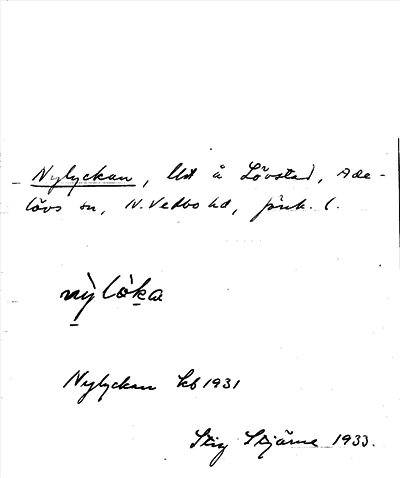 Nylyckan, lht å Lövstad, Ade-
lövs sn, N. Vedbo hd, Jönk. l.
nỳlòka
Nylyckan kb 1931
Stig Stjärne 1933.